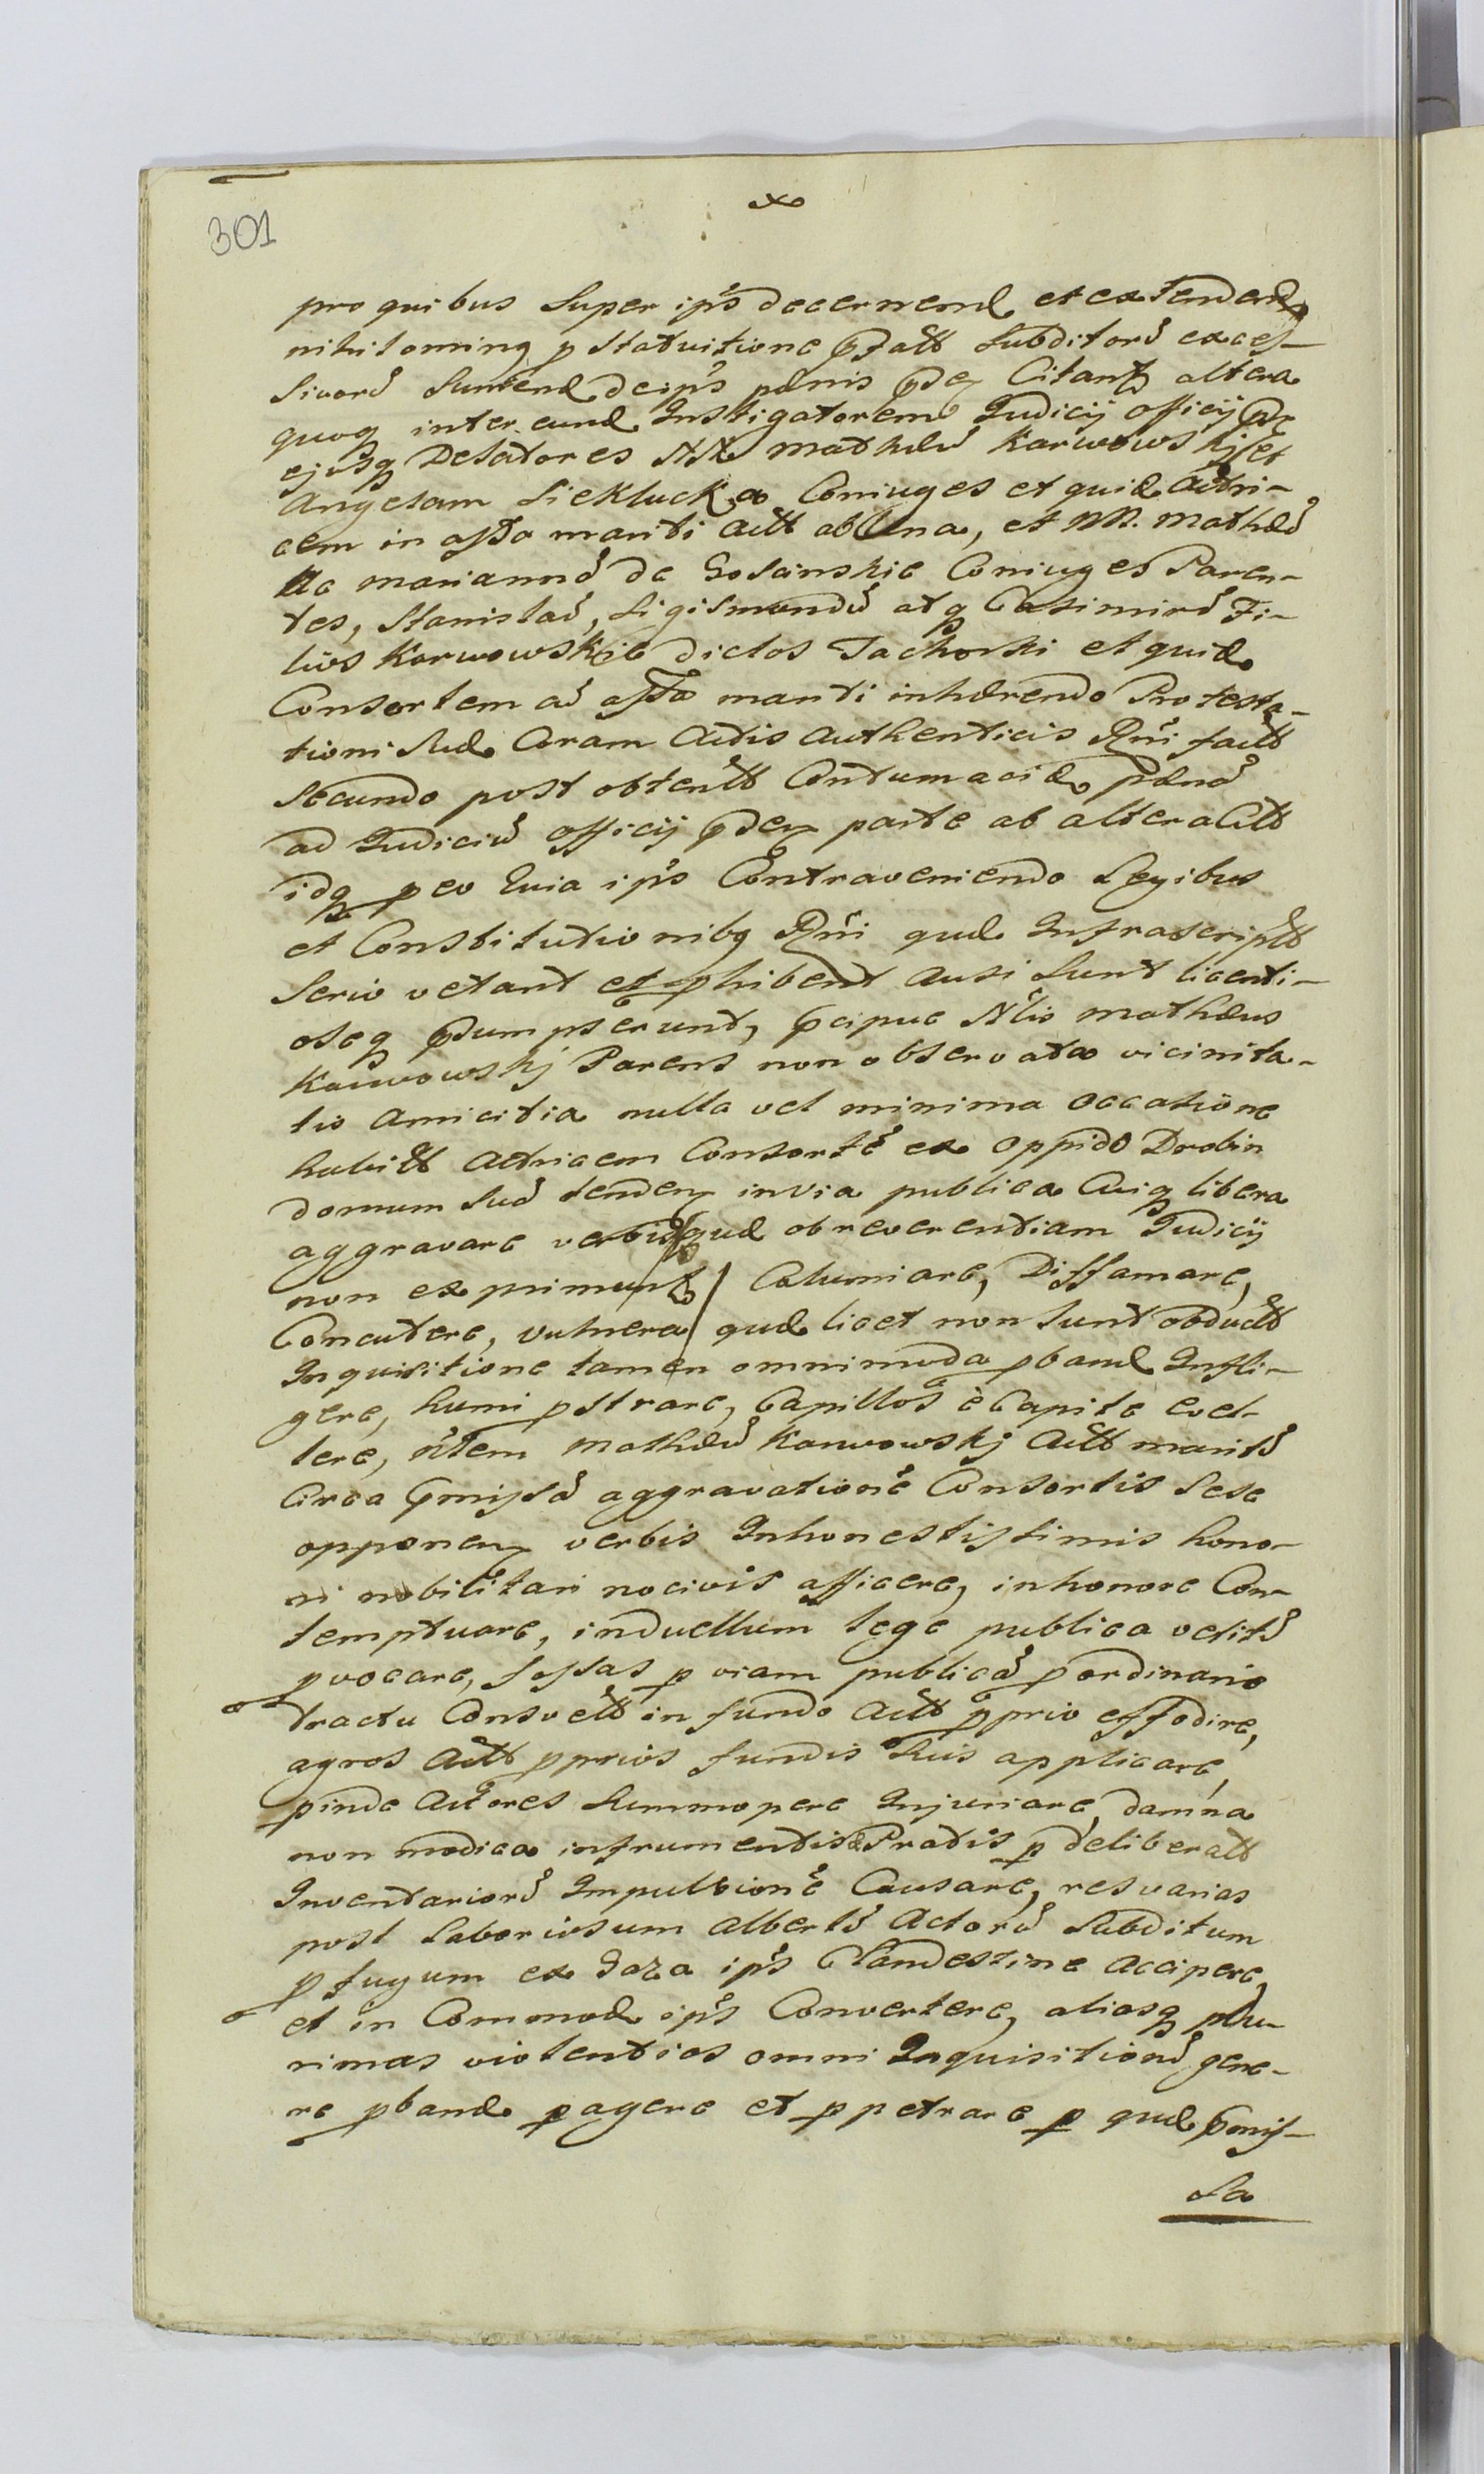 301
pro quibus Super ips decernend et extendend
nihiloming p Statuitione pfatt Subditorū exces-
sivorū Sumend de ips pænis pdez Citantq altera
quoq inter eund Instigatorem Judicij officij pdc
ejusq Delatores NN Mathæū Karwowskj et
Angelam Sieklucka Coniuges et quid Actri-
cem in assa mariti Actt ab Una, et NN. Mathæū
Ac Mariannā de Golanskie Coniuges Paren-
tes, Stanislaū, Sigismundū atq Casimirū Fi-
lios Karwowskie dictos Tachorki et quid
Consortem ad assa mariti inhærendo Protesta-
tioni Suæ Coram Actis Authenticis Rni factt
Secundo post obtentt Contumaciæ pænā
ad Judiciū officij pdez parte ab altera Citt
idq peo Quia ips Contraveniendo Legibus
et Constitutionibq Rni quæ Infrascriptt
Serio vetant et phibent Ausi Sunt licenti-
oseq psumpserunt, pcipue Nlis Mathæus
Karwowskj Parens non observata vicinita-
tis Amicitia nulla vel minima occatione
habitt Actricem Consortē ex oppido Drobin
domum Suā tendez in via publica Cuiq libera
aggravare verbis quæ ob reverentiam Judicij
non exprimunt / Calumniare, Diffamare,
Concutere, vulnera / quæ licet non Sunt obductt
Inquisitione tamen omnimoda pband Infli-
gere, humi pstrare, Capillos è Capite evel-
lere, itēm Mathæū Karwowskj Actt maritū
Circa pmissā aggravationē Consortis Sese
opponez verbis Inhonestissimis hono-
ri nobilitari nocivis afficere, inhonore Con-
temptuare, in duellum lege publica vetitū
pvocare, fossas p viam publicā p ordinario
tractu Consvett in fundo Actt pprio effodire,
agros Actt pprios fundis Suis applicare,
pinde Actores Summopere Injuriare, damna
non modica in frumentis & Pratis p deliberatt
Inventariorū Impulsionē Causare, res varias
post Laboriosum Albertū Actorū Subditum
pfugum ex Gaza ips Clandestine Accipere,
et in Commod ips Convertere, aliasq plu-
rimas violentias omni Inquisitionū gene-
re pband pagere et ppetrare p quæ pmis-
sa